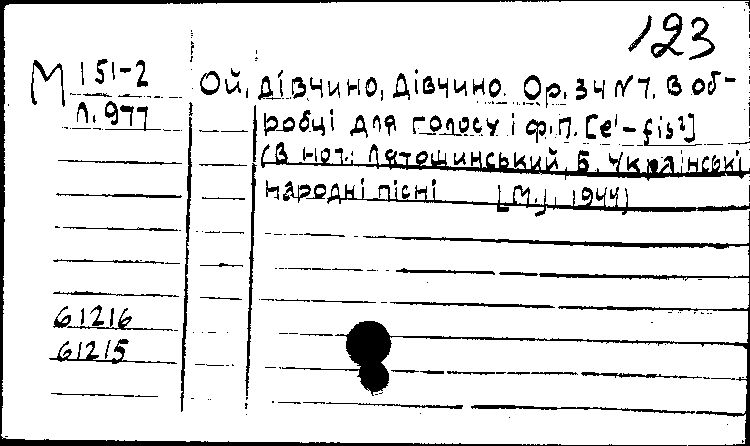 123
М 151-2
Л. 977
Ой, дівчино, дівчино. Op. 34 N 7. В об-
робці для голосу і ф.п. [e¹ - fis²]
(В нот.: Лятошинський, Б. Українські
народні пісні [М.], 1944)
61216
61215